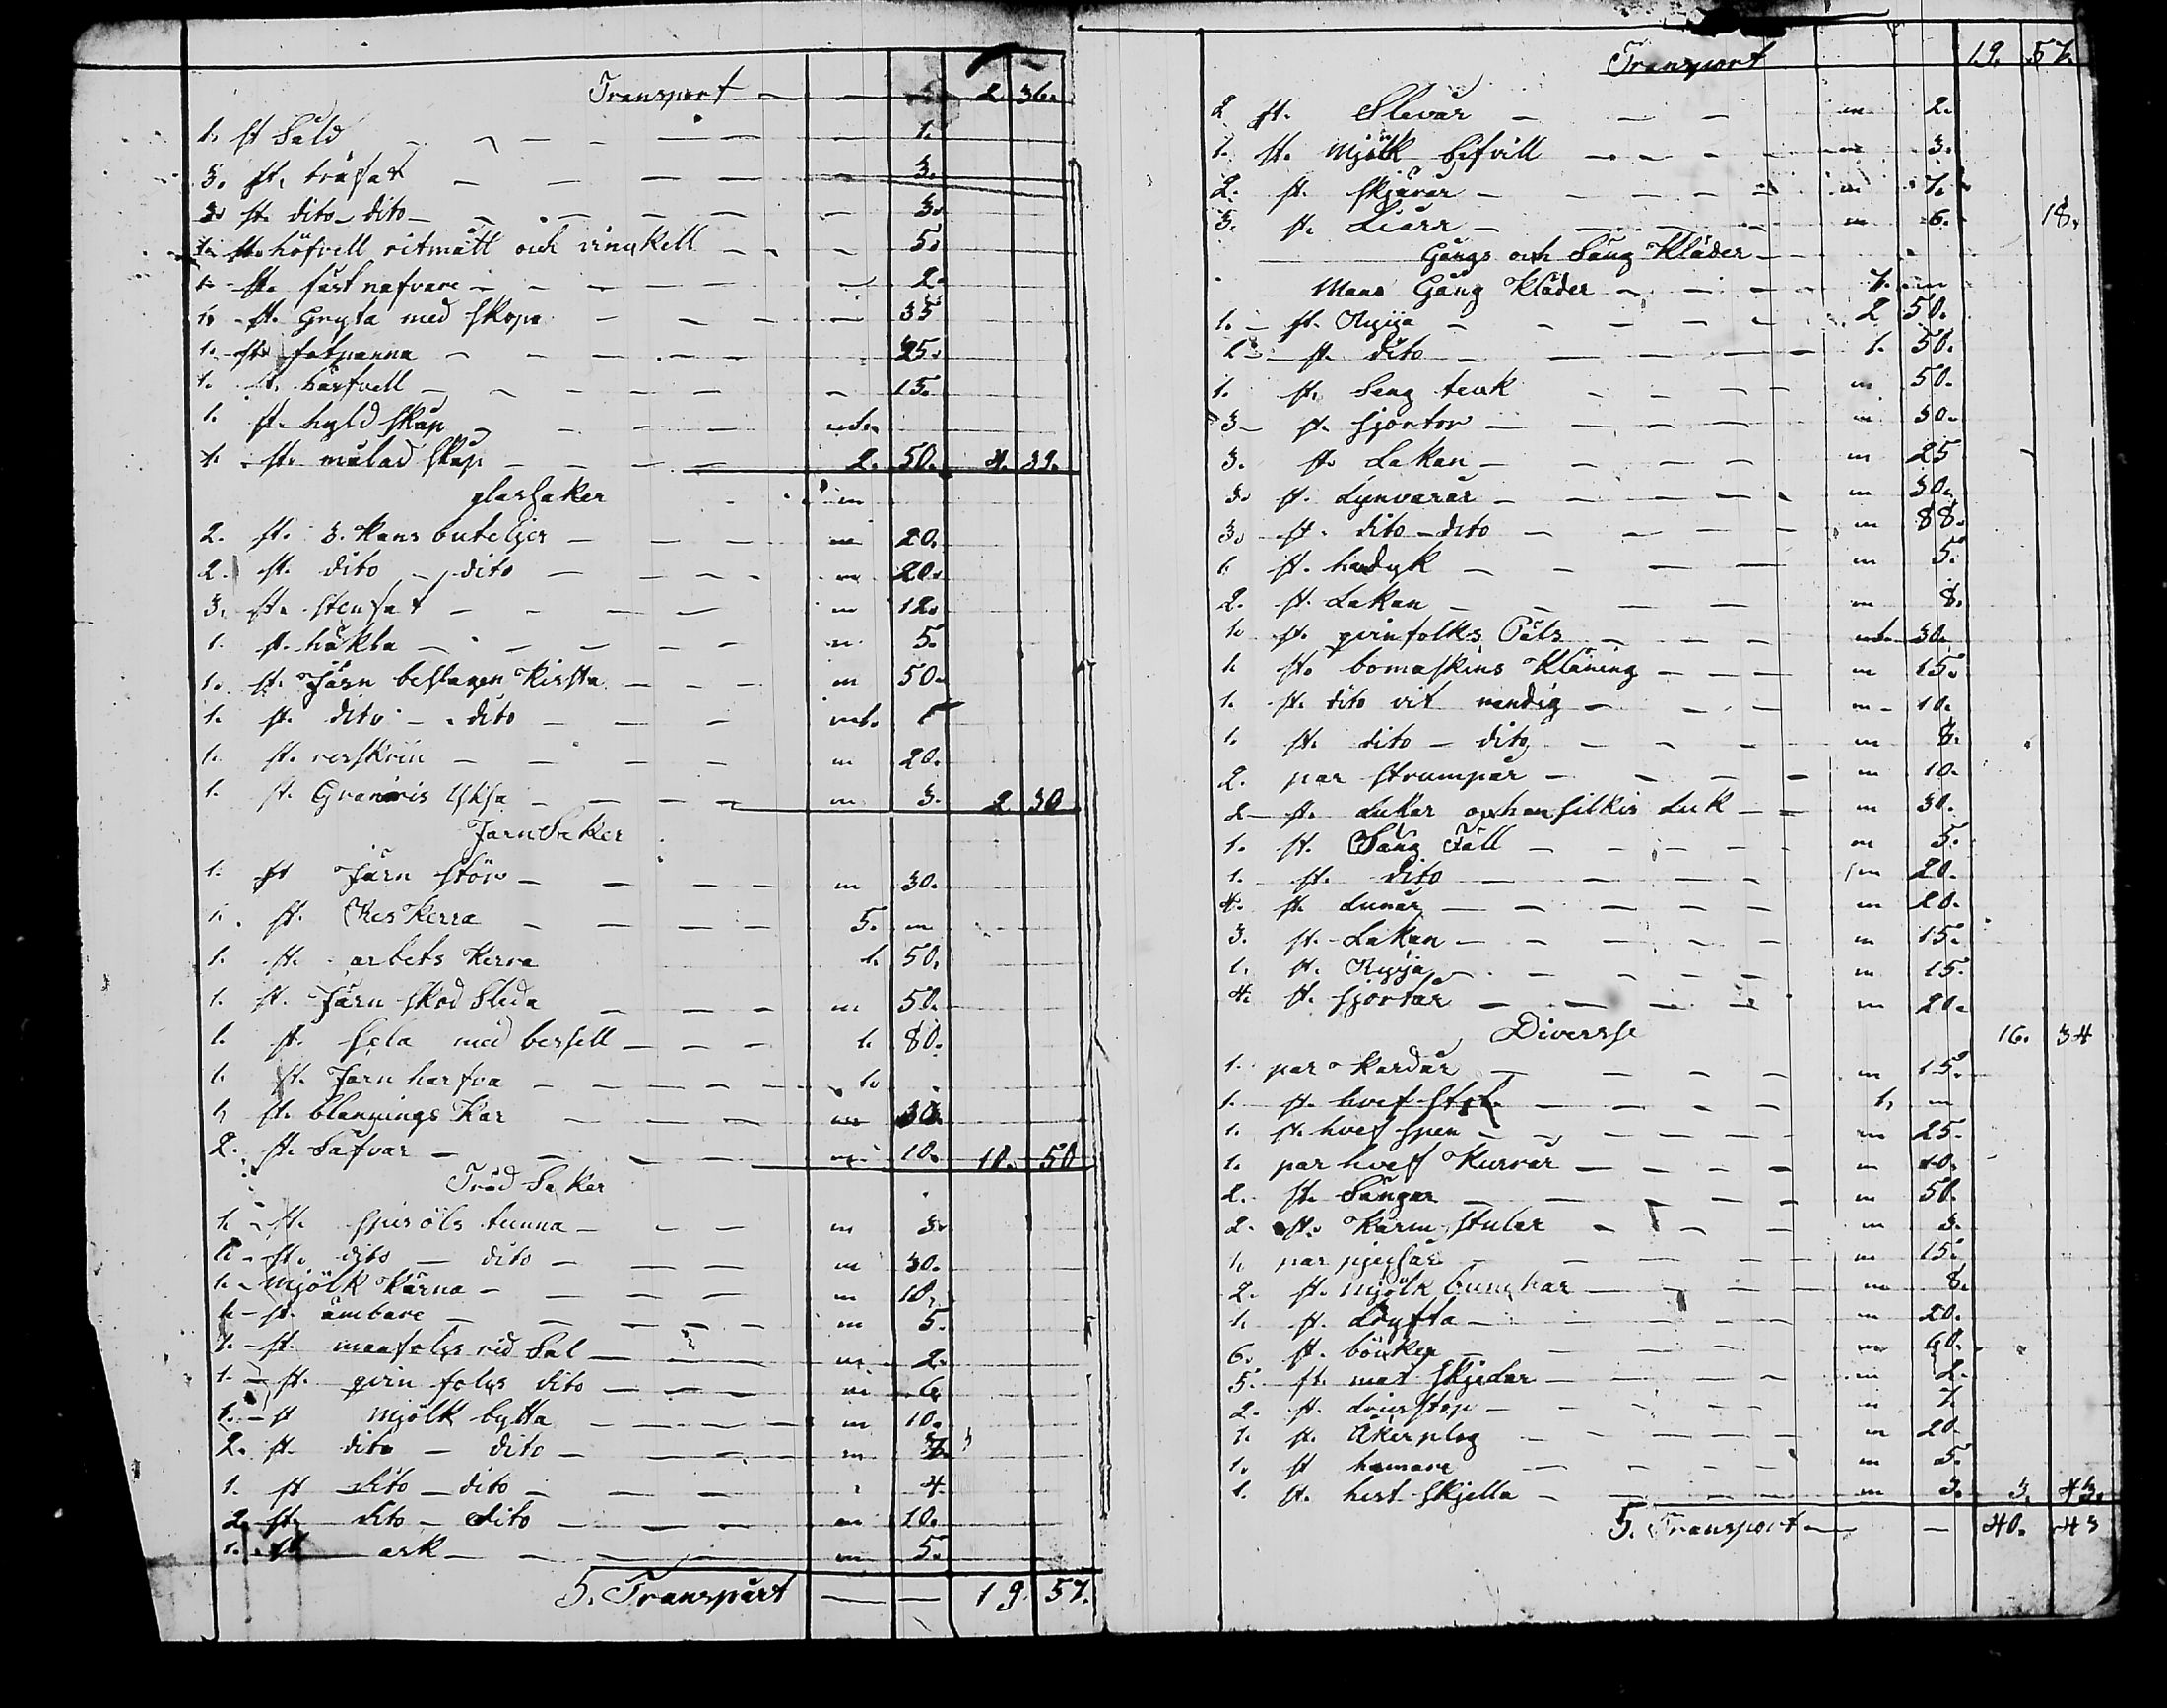 Transport — — 2 36.
1. st Såld — — — 1.
3. st. träfat — — — 3.
3. st. dito - dito — — — 3.
1. st. höfvell ritmått och vinkell — — 5.
1. st. fast nafvare — — — 2.
1. st. Gryta med skopa — — — 35
1. st. fotpanna — — — 25.
1. st. harfvell — — — 15.
1. st. hyld skåp — — —
1. st. målad skåp — — — 2. 50. 4. 39.
glas saker
2. st. 3. kans buteljer — — — 20.
2. st. dito - dito — — — 20.
3. st. stenfat — — — 12.
1. st. häkla — — — 5.
1. st. Järn beslagen kirsta — — — 50.
1. st. dito - dito — — —
1. st. resskrin — — — 20.
1. st. Granris yksa — — — 3. 2. 30
Jarn Saker
1. st Järn stör — — — 30.
1. st. Reskerra — — — 5.
1. st. arbets kerra 1. 50.
1. st. Järn skod Slida — — — 50.
1. st. Sela med bersell — — — 1. 80.
1. st. Jarn harfva — — — 1.
1. st. blannings kar — — — 30.
2. st. Safvar — — — 10. 10. 50
Träd Saker
1. st. spisöls tunna — — — 3.
1. st. dito — dito — — — 30.
1. Mjölk kärna — — — 10.
1. st. ämbare — — — 5.
1. st. manfolgs rid Sal — — — 2.
1. st. qvin folgs dito — — — 6
1. st Mjölk bytta — — — 10.
2. st. dito — dito — — —
1. st dito — dito — — — 4
2. st. dito — dito — — — 10.
1. st ark — — — 5.
S. Transpårt — — 19. 57.
Transport 19. 57.
2 st. Slevar — — — 2.
1. st. Mjölk — — — 3.
2. st. skjärar — — — 7.
3. st. Liarr — — — 6. 18.
Gångs och Säng Kläder —
Mans Gång Kläder — — — 7.
1. st. Ryija — — — 2 50.
1 st. dito — — — 1. 50.
1. st. Seng teck — — — 50.
3 st. sjortor — — — 50.
3. st. Lakan — — — 25
3. st. Lynvarar — — — 30.
3. st. dito - dito — — — 88.
1 st. handyk — — — 5.
2. st. Lakan — — — 8.
1. st. qvinfolks Päls — — — 30.
1. st. bomaskins Kläning — — — 15.
1. st. dito vit vendig — — — 10.
1. st. dito — dito — — — 8.
2. par strumpår — — — 10.
2 st. dukar och en silkis duk — — 30.
1. st. Säng Fäll — — — 5.
1. st. dito — — — 20.
4. st. dunår — — — 20.
3. st. Lakan — — — 15.
1. st. Ryija — — — 15.
4. st. sjortår — — — 20.
Diversse 16. 34
1. par kardår — — — 15.
1. st. hvef — — — 1.
1. st. hvef spen — — — 25.
1. par hvef Kurvar — — — 10.
2. st. Sängar — — — 50.
2. st. karm stular — — — 3.
1. par pjeksår — — — 15.
2. st. Mjölk bunkar — — — 8.
1. st. Lögfta — — — 20.
6. st. böcker — — — 60.
5. st. mat skjedar — — — 2.
2. st. — — — 7.
1. st. Åkerplog — — — 20
1. st hamare — — — 5.
1. st. hest skjella — — — 3. 3. 43.
S. Transport — — 40. 43